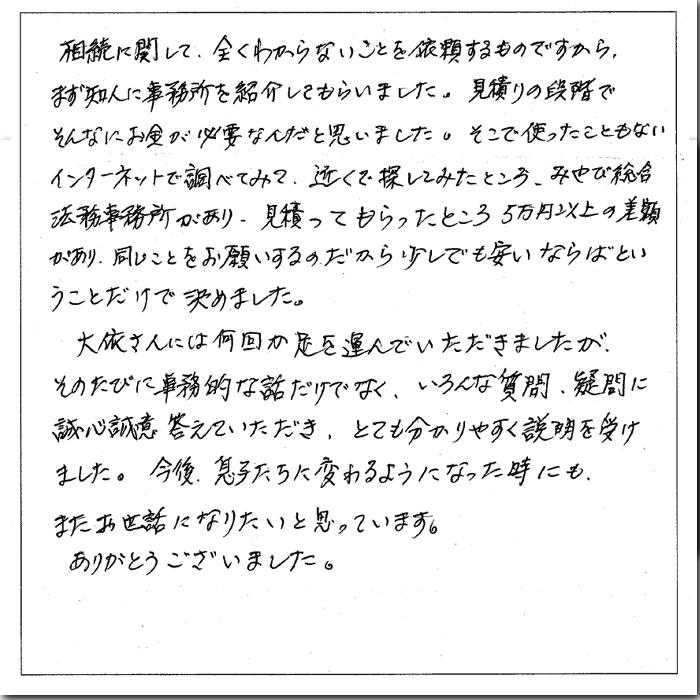 相続に関して、全くわからないことを依頼するものですから、
まず知人に事務所を紹介してもらいました。見積りの段階で
そんなにお金が必要なんだと思いました。そこで使ったこともない
インターネットで調べてみて、近くで探してみたところ、みやび総合
法務事務所があり、見積ってもらったところ5万円以上の差額
があり、同じことをお願いするのだから少しでも安いならばとい
うことだけで決めました。
大依さんには何回か足を運んでいただきましたが、
そのたびに事務的な話だけでなく、いろんな質問、疑問に
誠心誠意答えていただき、とても分かりやすく説明を受け
ました。今後、息子たちに変わるようになった時にも、
またお世話になりたいと思っています。
ありがとうございました。